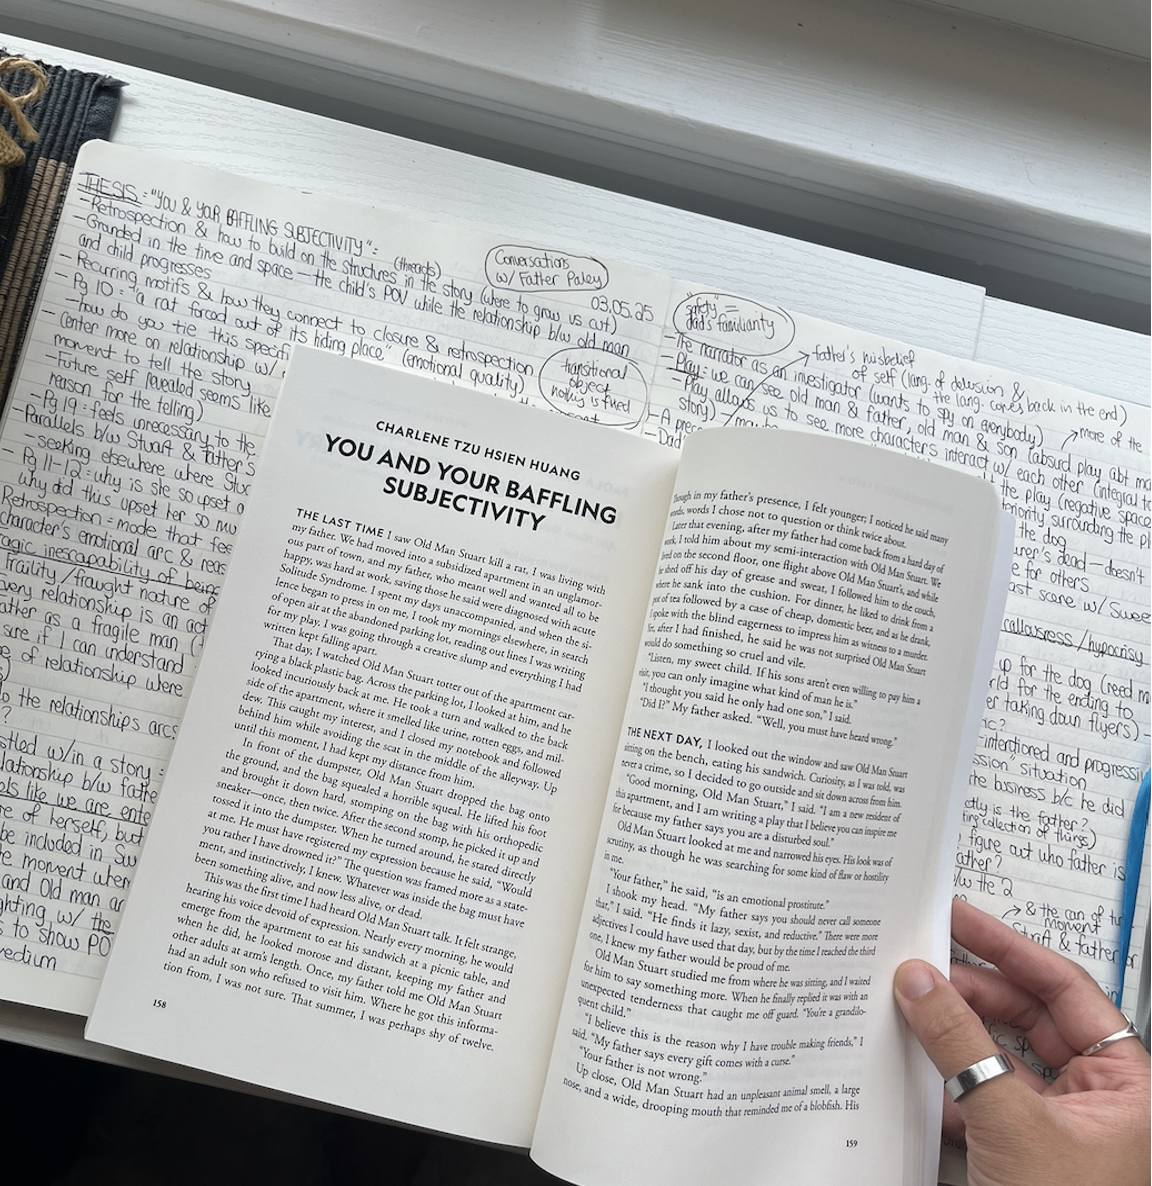 THESIS: "YOU & YOUR BAFFLING SUBJECTIVITY":
-Retrospection & how to build on the structures in the story (where to grow us out)
(threads)
-Grounded in the time and space — the child's POV while the relationship b/w old man
and child progresses
- Recurring motifs & how they connect to closure & retrospection
- Pg 10: "a rat forced out of its hiding place" (emotional quality)
-how do you tie this
- Center more on relationship w/
moment to tell the story
-Future self revealed seems like
reason for the telling)
-Pg 19: feels unnecessary to the
-Parallels b/w Stuart & father's
-seeking elsewhere where
- Pg 11-12: why is she so upset
why did this upset her so mu
Retrospection = mode that
character's emotional arc & reas
inescapability of being
fragility/fraught nature of
every relationship is an
father as a fragile man
sure if I can understand
of relationship were
to the relationships arcs
?
w/in a story:
b/w fathe
like we are ente
of herself, but
be included in
moment when
and Old man ar
w/ the
to show PO
Conversations
w/ Father Paley
03.05.25
transitional
object
nothing is fixed
"safety" =
dad's familiarity
-The narrator as an investigator (wants to spy on everybody)
father's misbelief
of self (lang. of delusion &
the lang. comes back in the end)
- Play: we can see old man & father, old man & son (absurd play abt
more of the
-Play allows us to see more characters interact w/ each other (integral to
story)
the play (negative space
surrounding the
the dog
dead — doesn't
for others
scene w/
callousness/hypocrisy
up for the dog (
for the ending to
taking down flyers)
intentioned and progressiv
situation
the business b/c he did
is the father?
collection of things)
figure out who father is
father?
b/w the 2
& the can of
moment
Stuart & father
CHARLENE TZU HSIEN HUANG
YOU AND YOUR BAFFLING
SUBJECTIVITY
THE LAST TIME I saw Old Man Stuart kill a rat, I was living with
my father. We had moved into a subsidized apartment in an unglamor-
ous part of town, and my father, who meant well and wanted all to be
happy, was hard at work, saving those he said were diagnosed with acute
Solitude Syndrome. I spent my days unaccompanied, and when the si-
lence began to press in on me, I took my mornings elsewhere, in search
of open air at the abandoned parking lot, reading out lines I was writing
for my play. I was going through a creative slump and everything I had
written kept falling apart.
That day, I watched Old Man Stuart totter out of the apartment car-
rying a black plastic bag. Across the parking lot, I looked at him, and he
looked incuriously back at me. He took a turn and walked to the back
side of the apartment, where it smelled like urine, rotten eggs, and mil-
dew. This caught my interest, and I closed my notebook and followed
behind him while avoiding the scat in the middle of the alleyway. Up
until this moment, I had kept my distance from him.
In front of the dumpster, Old Man Stuart dropped the bag onto
the ground, and the bag squealed a horrible squeal. He lifted his foot
and brought it down hard, stomping on the bag with his orthopedic
sneaker—once, then twice. After the second stomp, he picked it up and
tossed it into the dumpster. When he turned around, he stared directly
at me. He must have registered my expression because he said, "Would
you rather I have drowned it?" The question was framed more as a state-
ment, and instinctively, I knew. Whatever was inside the bag must have
been something alive, and now less alive, or dead.
This was the first time I had heard Old Man Stuart talk. It felt strange,
hearing his voice devoid of expression. Nearly every morning, he would
emerge from the apartment to eat his sandwich at a picnic table, and
when he did, he looked morose and distant, keeping my father and
other adults at arm's length. Once, my father told me Old Man Stuart
had an adult son who refused to visit him. Where he got this informa-
tion from, I was not sure. That summer, I was perhaps shy of twelve.
158
Though in my father's presence, I felt younger; I noticed he said many
words, words I chose not to question or think twice about.
Later that evening, after my father had come back from a hard day of
work, I told him about my semi-interaction with Old Man Stuart. We
lived on the second floor, one flight above Old Man Stuart's, and while
he shed off his day of grease and sweat, I followed him to the couch,
where he sank into the cushion. For dinner, he liked to drink from a
pot of tea followed by a case of cheap, domestic beer, and as he drank,
I spoke with the blind eagerness to impress him as witness to a murder.
Yet, after I had finished, he said he was not surprised Old Man Stuart
would do something so cruel and vile.
"Listen, my sweet child. If his sons aren't even willing to pay him a
visit, you can only imagine what kind of man he is."
"I thought you said he only had one son," I said.
"Did I?" My father asked. "Well, you must have heard wrong."
THE NEXT DAY, I looked out the window and saw Old Man Stuart
sitting on the bench, eating his sandwich. Curiosity, as I was told, was
never a crime, so I decided to go outside and sit down across from him.
"Good morning, Old Man Stuart," I said. "I am a new resident of
this apartment, and I am writing a play that I believe you can inspire me
for because my father says you are a disturbed soul."
Old Man Stuart looked at me and narrowed his eyes. His look was of
scrutiny, as though he was searching for some kind of flaw or hostility
in me.
"Your father," he said, "is an emotional prostitute."
I shook my head. "My father says you should never call someone
that," I said. "He finds it lazy, sexist, and reductive." There were more
adjectives I could have used that day, but by the time I reached the third
one, I knew my father would be proud of me.
Old Man Stuart studied me from where he was sitting, and I waited
for him to say something more. When he finally replied it was with an
unexpected tenderness that caught me off guard. "You're a grandilo-
quent child."
"I believe this is the reason why I have trouble making friends," I
said. "My father says every gift comes with a curse."
"Your father is not wrong."
Up close, Old Man Stuart had an unpleasant animal smell, a large
nose, and a wide, drooping mouth that reminded me of a blobfish. His
159